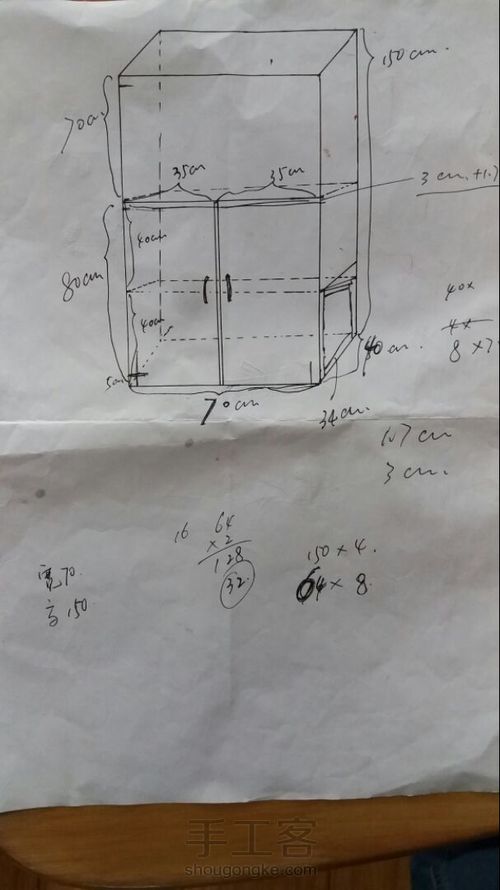 150cm.
70cm
35cm
35cm
3cm+1.7
40cm
80cm
40cm
40x
4x
8x7
5cm
40cm.
70cm
34cm.
1.7cm
3cm.
16
64
x2
128
32
150x4.
64x8.
宽70.
高150
手工客
shougongke.com